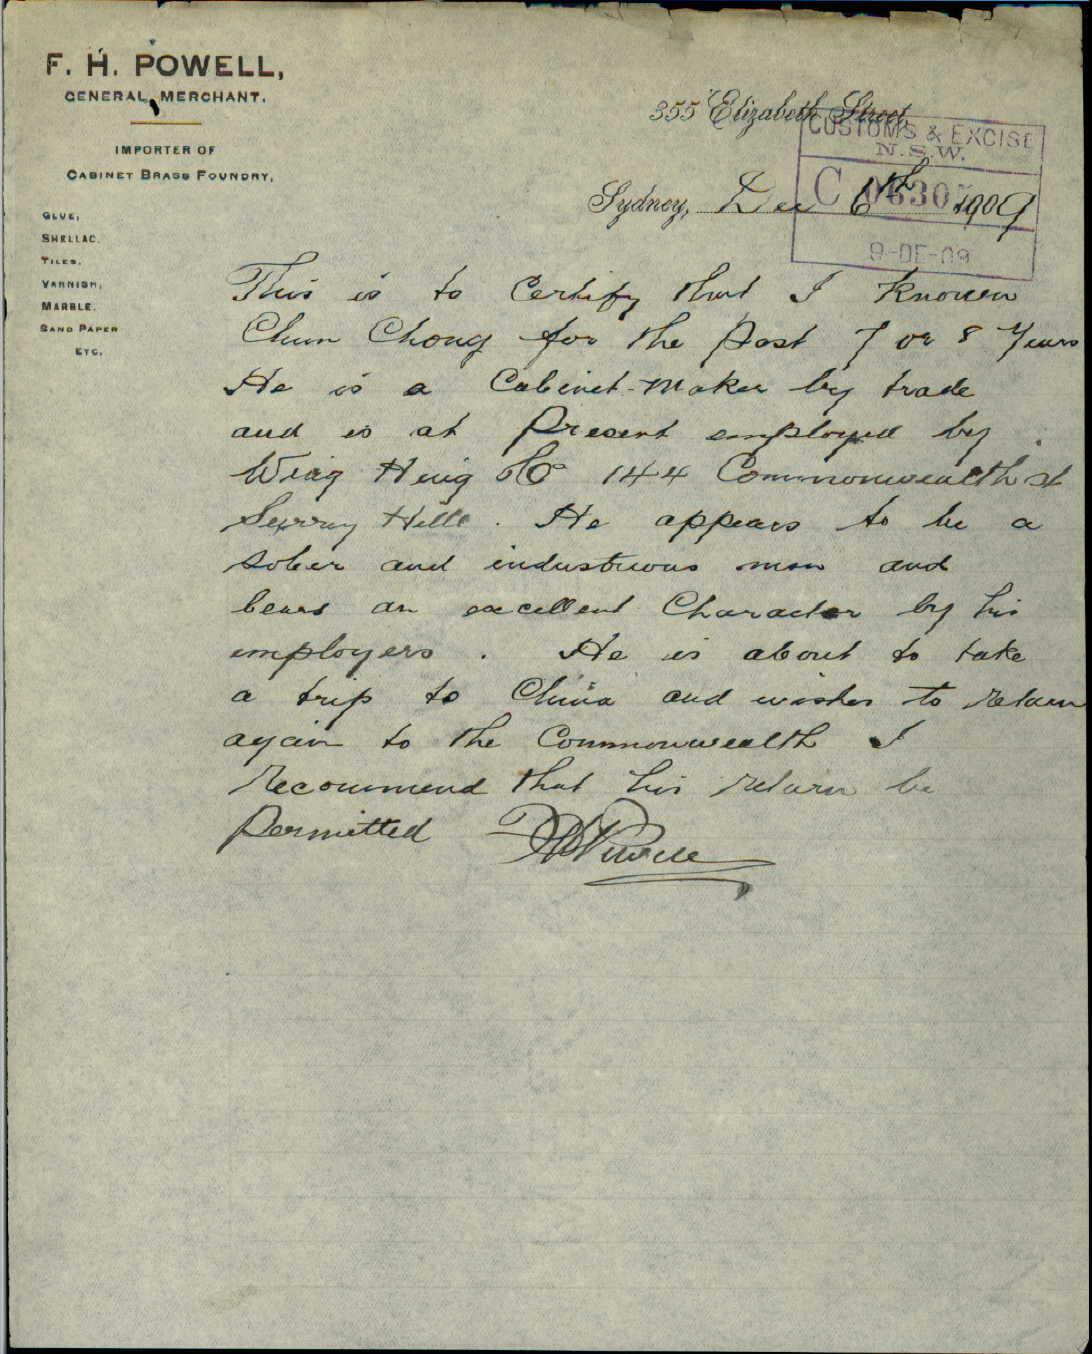 F. H. POWELL,
GENERAL MERCHANT.
IMPORTER OF
CABINET BRASS FOUNDRY,
GLUE,
SHELLAC.
TILES.
VARNISH,
MARBLE.
SAND PAPER
ETC.
355 Elizabeth Street,
CUSTOMS & EXCISE
N.S.W.
C 0630
9-DE-09
Sydney, Dec 6th 1909
This is to Certify that I Knowen
Chun Chong for the Past 7 or 8 Years
He is a Cabinet-Maker by trade
and is at Present employed by
Wing Hing & Co 144 Commonwealth st
Surray Hills. He appears to be a
sober and industrious man and
bears an excellent Character by his
employers. He is about to take
a trip to China and wishes to return
again to the Commonwealth I
Recommend that his return be
Permitted FHPowell